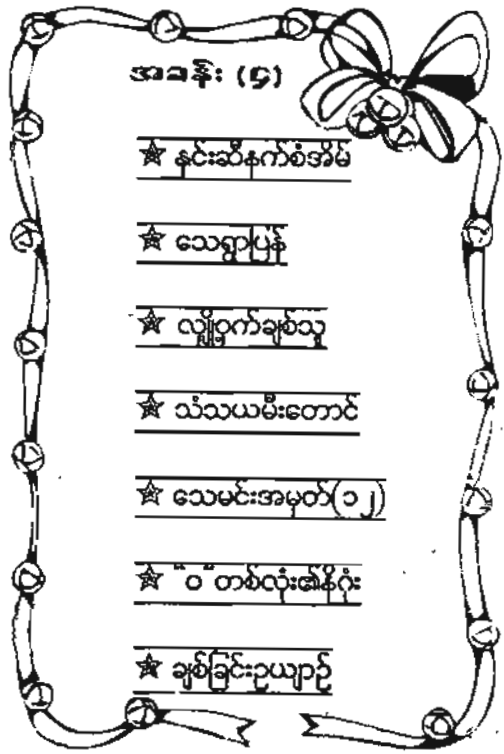 အခန်း (၄)
နှင်းဆီနက်စံအိမ်
သေရွာပြန်
လျှို့ဝှက်ချစ်သူ
သံသယမီးတောင်
သေမင်းအမှတ်(၁၂)
"ဝ"တစ်လုံး၏နိဂုံး
ချစ်ခြင်းဥယျာဉ်